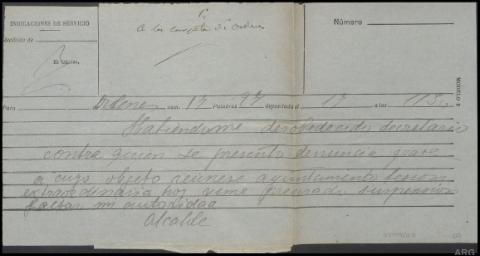 INDICACIONES DE SERVICIO
Recibido de
El
A la carpeta de
Número
MODELO
Para Ordenes num. 17 Palabras 27 depositado el 17 a las 11
Habiendome desobedecido secretario
contra quien se presentó denuncia grave
a cuyo objeto reunese ayuntamiento sesion
extraordinaria hoy veme precisado suspension
faltar mi autoridad
Alcalde
ARG